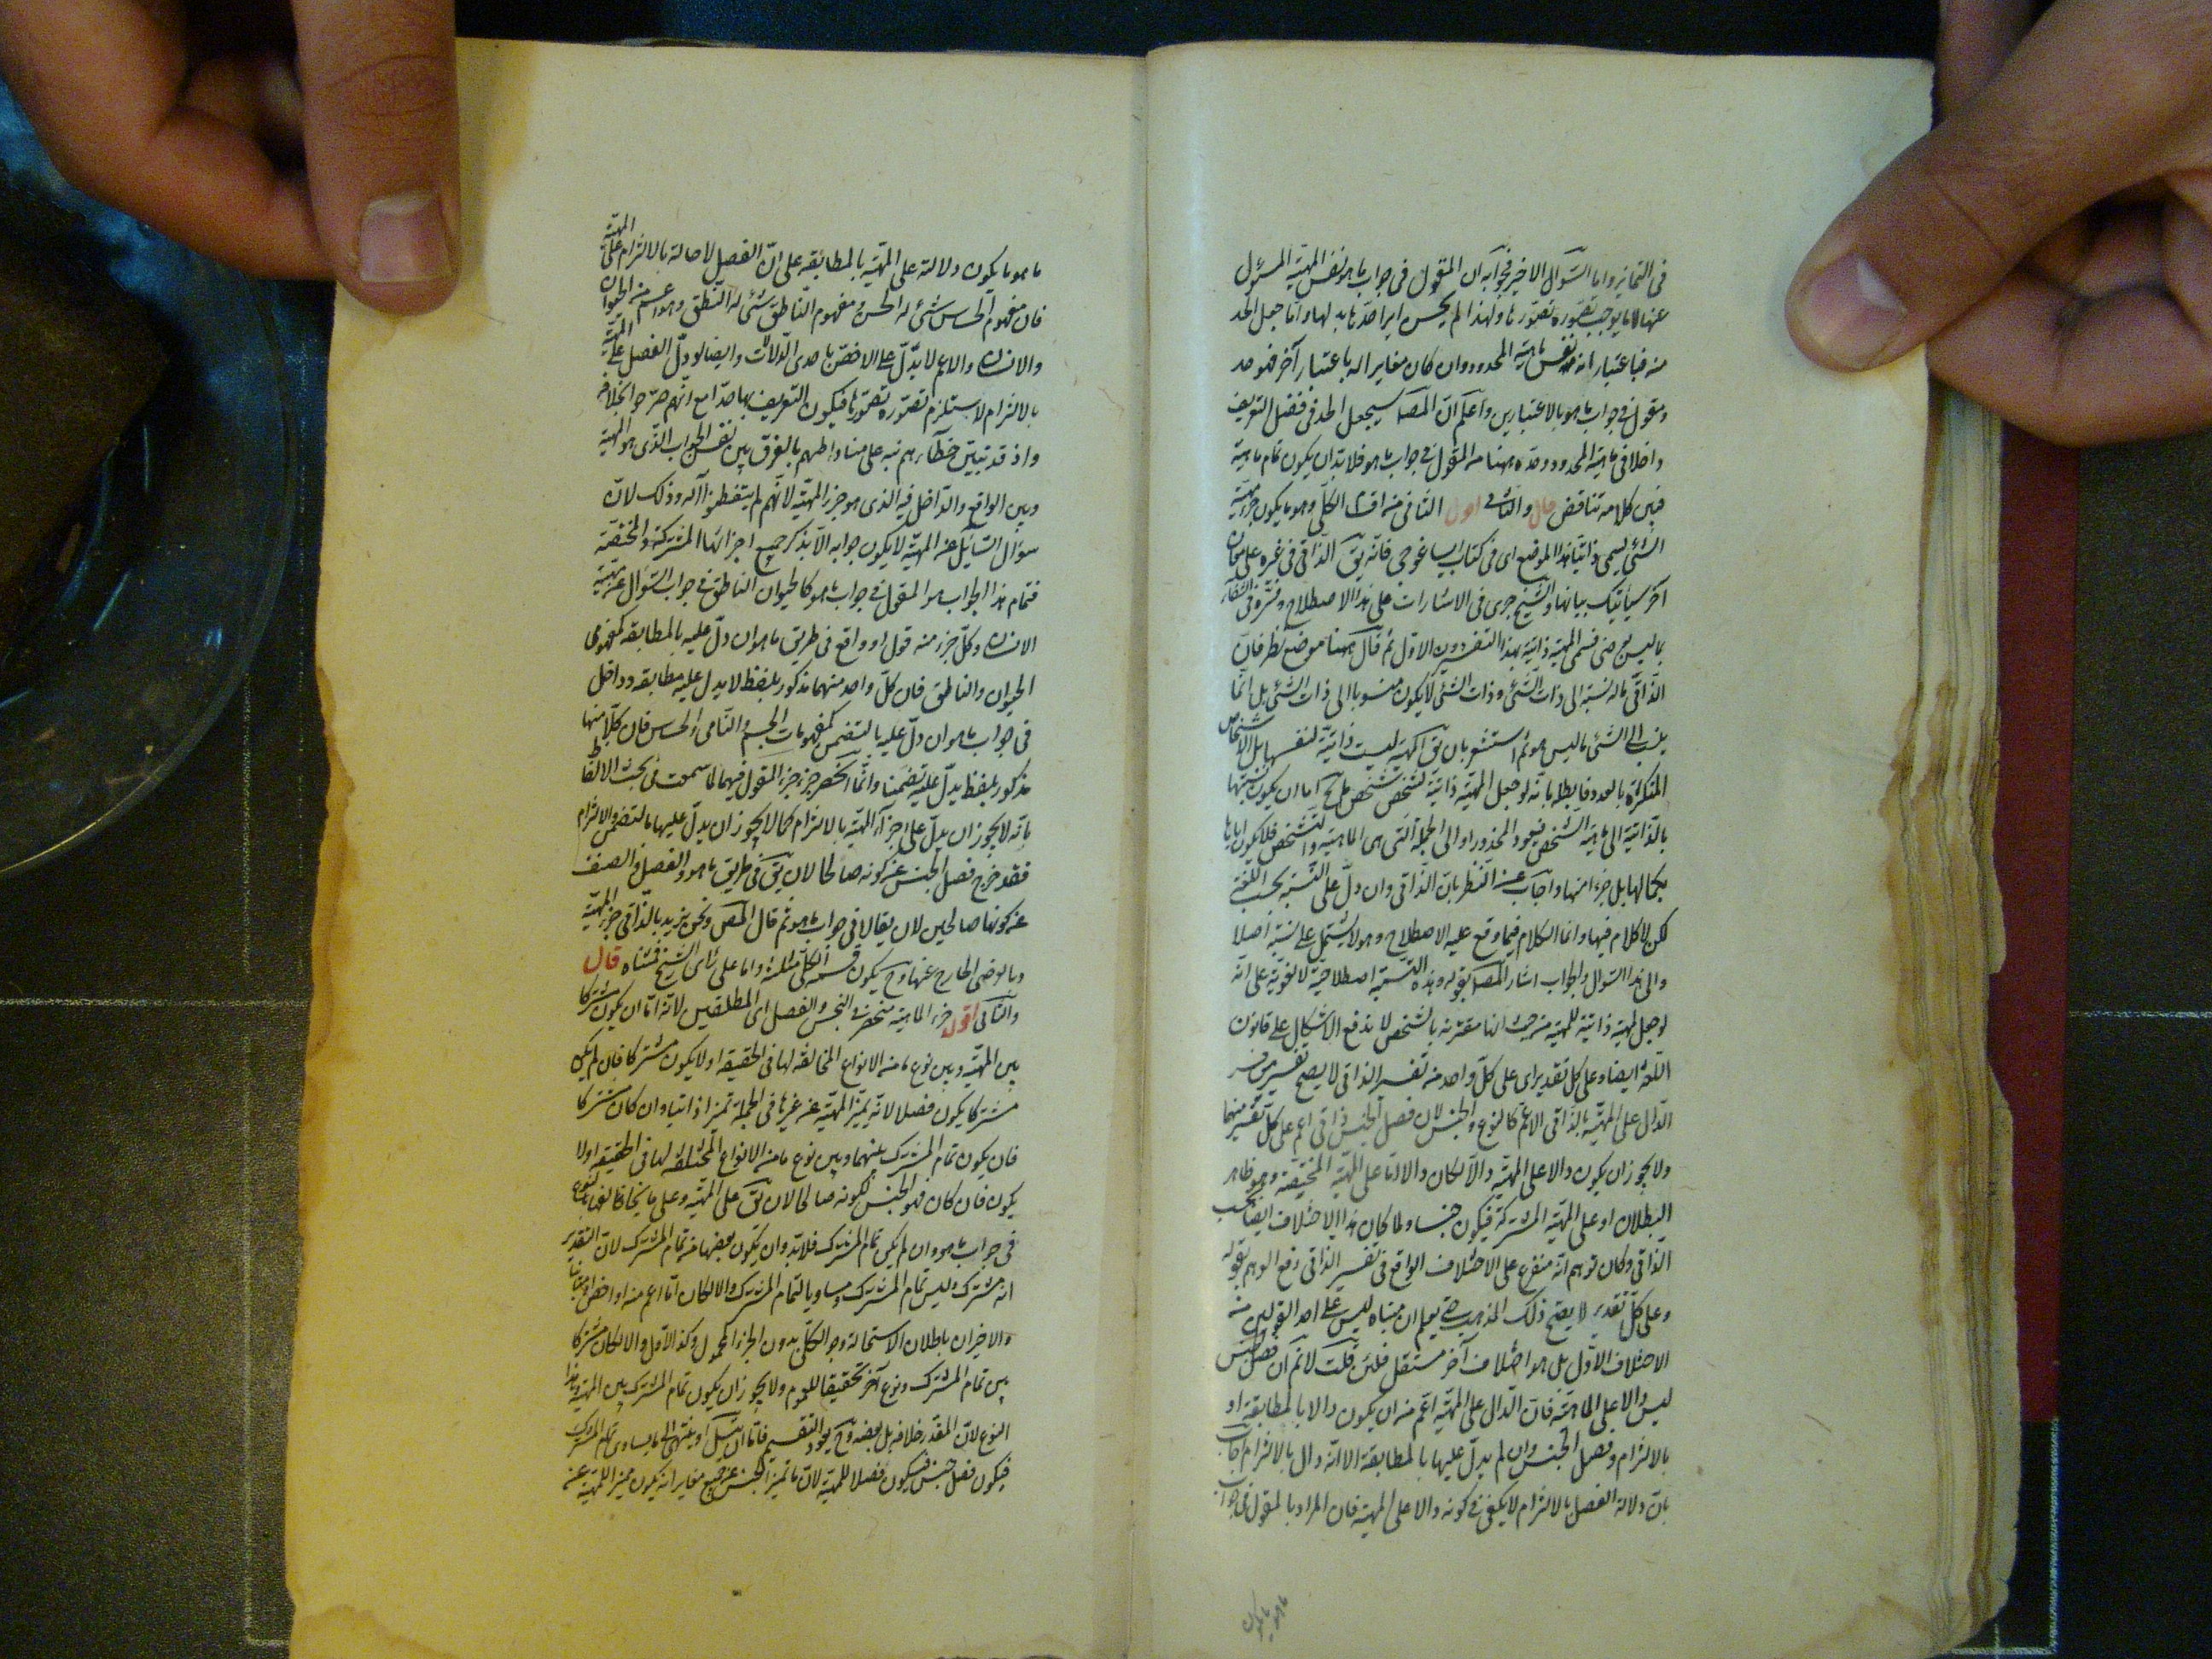 فى التمايز واما السؤال الاخير فجوابه ان المقول فى جواب ما هو نفس المهية المسئول
عنها لا ما يوجب تصوره تصورها ولهذا لم يحسن ايراد حدها بدلها واما جعل الحد
منه فباعتبار انه نفس ماهية المحدود وان كان مغايرا له باعتبار آخر فهو حد
ومقول فى جواب ما هو بالاعتبارين واعلم ان المصـ سيجعل الحد فى فصل التعريف
داخلا فى ماهية المحدود وعده ههنا من المقول فى جواب ما هو فلا بد ان يكون تمام ماهية
فبين كلاميه تناقض قال والثانى اقول الثانى من اقسام الكلى وهو ما يكون جزء مهية
الشئ يسمى ذاتيا فى هذا الموضع اى فى كتاب ايساغوجى فانه يق الذاتى فى غيره على معان
اخر سيأتيك بيانها والشيخ جرى فى الاشارات على هذا الاصطلاح وفسره فى الشفاء
بما ليس بعرضى فسمى المهية ذاتية بهذا التفسير دون الاول ثم قال ههنا موضع نظر فان
الذاتى ما له نسبة الى ذات الشئ وذات الشئ لا يكون منسوبا الى ذات الشئ بل انما
ينسب الى الشئ ما ليس هو ثم استشعر بان يق المهية ليست ذاتية لنفسها بل للاشخاص
المتكثرة بالعدد فابطله بانه لو جعل المهية ذاتية لشخص شخص فلا يخ اما ان يكون نسبتها
بالذاتية الى ماهية الشخص فيعود المحذور او الى الجملة التى هى الماهية والتشخص فلا يكون اياها
بكمالها بل جزءا منها واجاب عن النظر بان الذاتى وان دل على النسبة بحسب اللغة
لكن لا كلام فيها وانما الكلام فيما وقع عليه الاصطلاح وهو لا يشتمل على نسبة اصلا
والى هذا السؤال والجواب اشار المصـ بقوله وهذه التسمية اصطلاحية لا لغوية على انه
لو جعل المهية ذاتية للمهية من حيث انها مقترنة بالتشخص لاندفع الاشكال على قانون
اللغة ايضا وعلى كل تقدير اى على كل واحد من تفسيرى الذاتى لا يصح تفسير من فسر
الدال على المهية بالذاتى الاعم كالنوع والجنس لان فصل الجنس ذاتى اعم على كل تفسير منهما
ولا يجوز ان يكون دالا على المهية والا لكان دالا اما على المهية المختصة وهو ظاهر
البطلان او على المهية المشتركة فيكون جنسا ولما كان هذا الاختلاف ايضا بحسب
الذاتى وكان توهم انه متفرع على الاختلاف الواقع فى تفسير الذاتى دفع الوهم بقوله
وعلى كل تقدير لا يصح ذلك المذهب حتى يعلم ان مبناه ليس على احد القولين من
الاختلاف الاول بل هو اختلاف آخر مستقل فلئن قلت لا نم ان فصل الجنس
ليس دالا على الماهية فان الدال على المهية اعم من ان يكون دالا بالمطابقة او
بالالتزام وفصل الجنس وان لم يدل عليها بالمطابقة الا انه دال بالالتزام اجاب
بان دلالة الفصل بالالتزام لا يكفى فى كونه دالا على المهية فان المراد بالمقول فى جواب
ما هو ما يكون
ما هو ما يكون دلالته على المهية بالمطابقة على ان الفصل لا دلالة بالالتزام على المهية
فان مفهوم الحساس شئ له الحس ومفهوم الناطق شئ له النطق وهو اعم من الحيوان
والانسان والاعم لا يدل على الاخص باحدى الدلالات وايضا لو دل الفصل على المهية
بالالتزام لاستلزم تصوره تصورها فيكون التعريف بها حدا مع انهم صرحوا بخلافه
واذ قد تبين خطاؤهم نبه على منشاء غلطهم بالفرق بين نفس الجواب الذى هو المهية
وبين الواقع والداخل فيه الذى هو جزء المهية لانهم لم يتفطنوا له وذلك لان
سؤال السائل عن المهية لا يكون جوابه الا بذكر جميع اجزائها المشتركة والمختصة
فتمام هذا الجواب هو المقول فى جواب ما هو كالحيوان الناطق فى جواب السؤال عن مهية
الانسان وكل جزء منه مقول او واقع فى طريق ما هو ان دل عليه بالمطابقة كمفهومى
الحيوان والناطق فان كل واحد منهما مذكور بلفظ لا يدل عليه مطابقة وداخل
فى جواب ما هو ان دل عليه بالتضمن كمفهومات الجسم والنامى والحساس فان كلا منها
مذكور بلفظ يدل عليه تضمنا وانما انحصر جزء جزء المقول فيهما لما سمعت فى بحث الالفاظ
بانه لا يجوز ان يدل على اجزاء المهية بالالتزام كما لا يجوز ان يدل عليها بالتضمن والالتزام
فقد خرج فصل الجنس عن كونه صالحا لان يق فى طريق ما هو والفصل والصنف
عن كونها صالحين لان يقالا فى جواب ما هو ثم قال المصـ ونحن نريد بالذاتى جزء المهية
وبالعرضى الخارج عنها وح يكون قسمة الكلى مثلثة واما على رأى الشيخ فمثناه قال
والثانى اقول جزء الماهية منحصر فى الجنس والفصل اى المطلقين لانه اما ان يكون مشتركا
بين المهية وبين نوع ما من الانواع المخالفة لها فى الحقيقة او لا يكون مشتركا فان لم يكن
مشتركا يكون فصلا لانه يميز المهية عن غيرها فى الجملة تميزا ذاتيا وان كان مشتركا
فان يكون تمام المشترك بينهما وبين نوع ما من الانواع المختلفة لها فى الحقيقة او لا
يكون فان كان فهو الجنس لكونه صالحا لان يق على المهية وعلى ما يخالفها بالنوع
فى جواب ما هو وان لم يكن تمام المشترك فلا بد وان يكون بعضها من تمام المشترك لان التقدير
انه مشترك وليس تمام المشترك ومساويا لتمام المشترك والا لكان اما اعم منه او اخص او مباينا
والاخيران باطلان لاستحالة وجود الكل بدون الجزء المحمول وكذا الاول والا لكان مشتركا
بين تمام المشترك ونوع آخر تحقيقا للعموم ولا يجوز ان يكون تمام المشترك بين المهية وهذا
النوع لان المقدر خلافه بل بعضه وح يعود التقسيم فاما ان يتسلسل او ينتهى الى ما يساوى تمام المشترك
فيكون فصل جنس فيكون فصلا للمهية لان ما تميز الجنس عن جميع مغايراته يكون مميزا للمهية عن